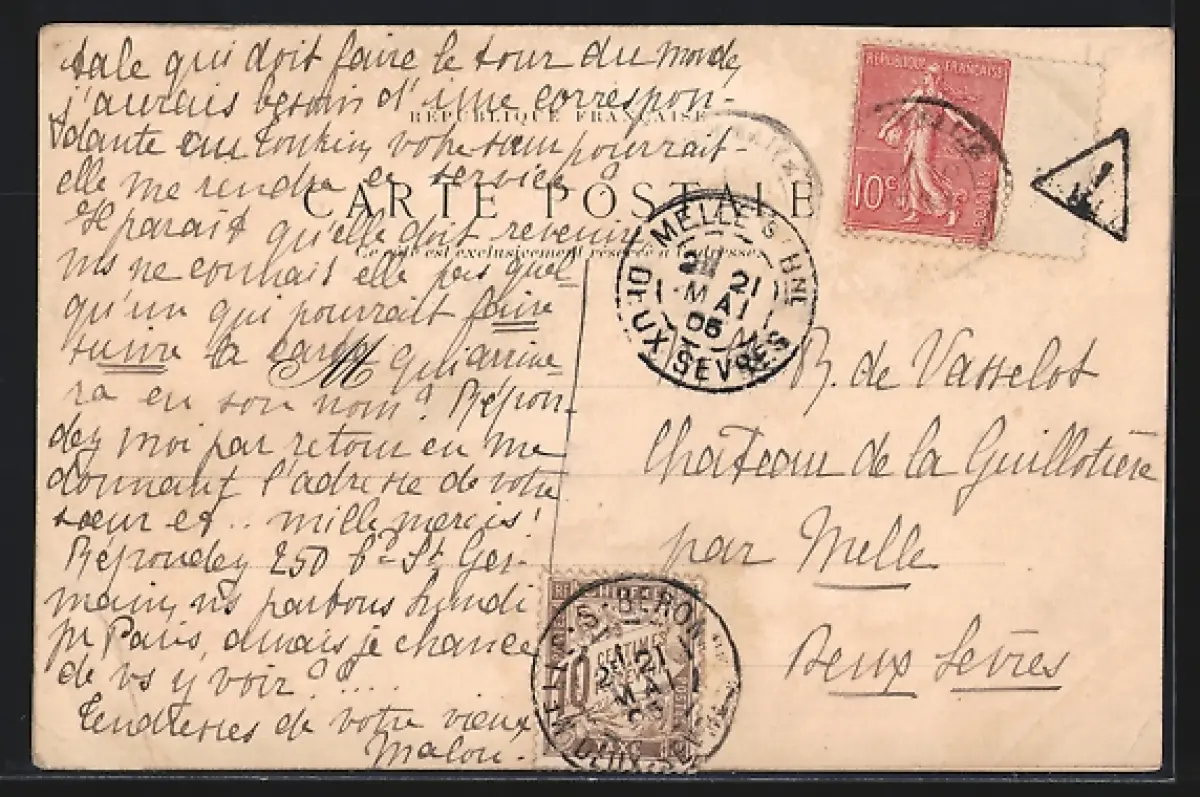 tale qui doit faire le tour du monde,
j'aurais besoin d'une correspon-
dante au Tonkin, votre sœur pourrait-
elle me rendre ce service?
Il parait qu'elle doit revenir
ms ne connait elle pas quel-
qu'un qui pourrait faire
suivre la carte qui arrive
ra en son nom? Répon-
dez moi par retour en me
donnant l'adresse de votre
sœur et .. mille mercis!
Répondez 250 Bd St Ger-
main, ns partons Lundi
pr Paris, aurais je chance
de vs y voir? ....
Tendresses de votre vieux
Malou.
RÉPUBLIQUE FRANÇAISE
CARTE POSTALE
Ce côté est exclusivement réservé à l'adresse
M
R. de Vasselot
Château de la Guillotière
par Melle
Deux Sèvres
RÉPUBLIQUE FRANÇAISE
10c
POSTES
MELLE S BNE
21
MAI
05
DEUX SEVRES
MELLE-S-BERONNE
CENTIMES
10
21
MAI
05
DEUX-SEVRES